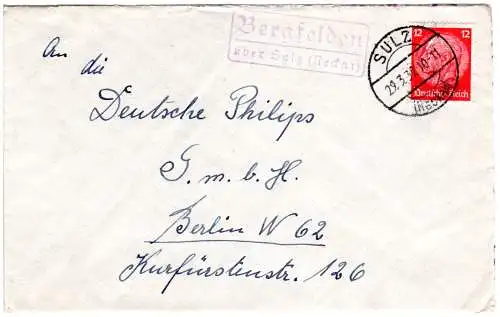 Bergfelden
über Sulz (Neckar)
SULZ
29.3.3
12 12
Deutsches Reich
An
die
Deutsche Philips
G.m.b.H.
Berlin W 62
Kurfürstenstr. 126